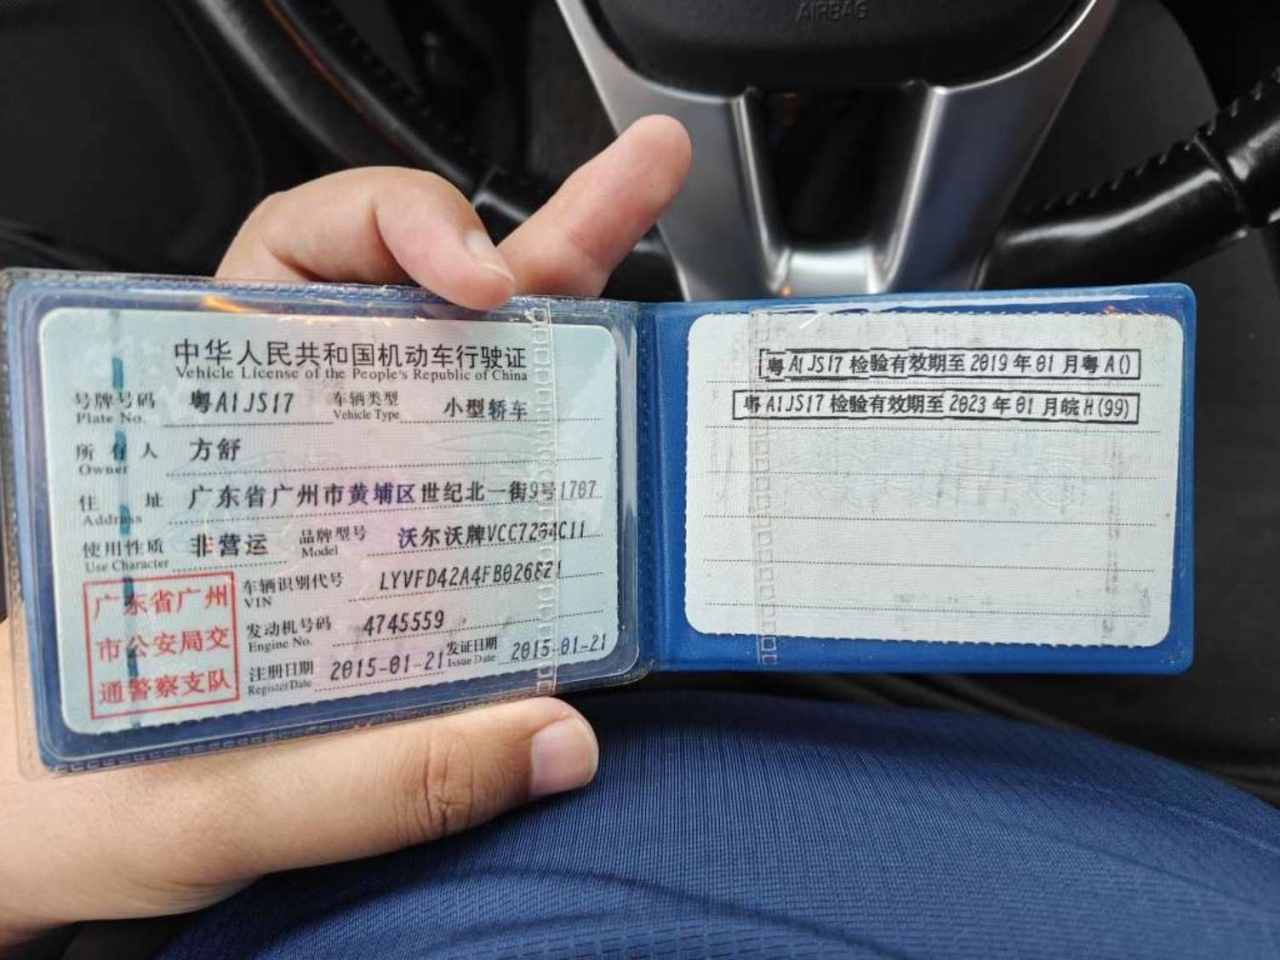 AIRBAG
中华人民共和国机动车行驶证
Vehicle License of the People's Republic of China
号牌号码 粤A1JS17 车辆类型 小型轿车
Plate No. Vehicle Type
所有人 方舒
Owner
住址 广东省广州市黄埔区世纪北一街9号1707
Address
使用性质 非营运 品牌型号 沃尔沃牌VCC7204C11
Use Character Model
车辆识别代号 LYVFD42A4FB026821
VIN
发动机号码 4745559
Engine No.
注册日期 2015-01-21 发证日期 2015-01-21
Register Date Issue Date
广东省广州
市公安局交
通警察支队
粤A1JS17检验有效期至2019年01月粤A()
粤A1JS17检验有效期至2023年01月皖H(99)